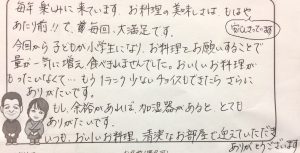 毎年楽しみに来ています。お料理の美味しさは もはや
安心しきっている
あたり前!!で、毎回、大満足です。
今回から子どもが小学生になり、お料理をお願いすることで
量が一気に増え、食べきれませんでした。おいしいお料理が
もったいなくて… もう1ランク 少ないチョイスもできたら さらに
ありがたいです。
もし、余裕があれば、加湿器があると、とても
ありがたいです。
いつも、おいしいお料理、清潔なお部屋で迎えていただき
ありがとうございます